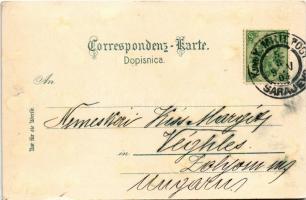 Correspondenz-Karte.
Dopisnica.
An
Nemeskéri Kiss Margit
in Véghles
Zólyom m
Ungarn
Nur für die Adresse
SARAJE